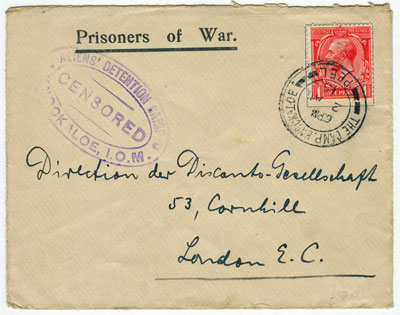 Prisoners of War.
ALIENS' DETENTION CAMP
CENSORED
KNOCKALOE, I.O.M.
THE CAMP KNOCKALOE
PEEL
2 PM
ONE PENNY
Direction der Disconto-Gesellschaft
53, Cornhill
London E. C.